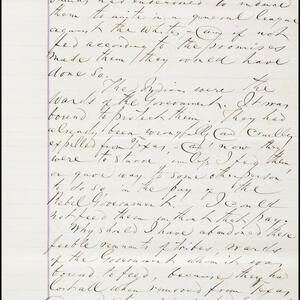 had endeavored to induce
them to unite in a general league
against the Whites, and if not
fed according to the promises
made them they would have
done so.
The Indians were the
Wards of the Government. It was
bound to protect them. They had
already been wrongfully and cruelly
expelled from Texas, and now they
were to starve unless I fed them,
or gave way to some other person
to do so in the pay of the
Rebel Government. I could
not feed them without that pay.
Why should I have abandoned these
feeble remnants of tribes, wards
of the Government whom it was
bound to feed, because they had
lost all when removed from Texas